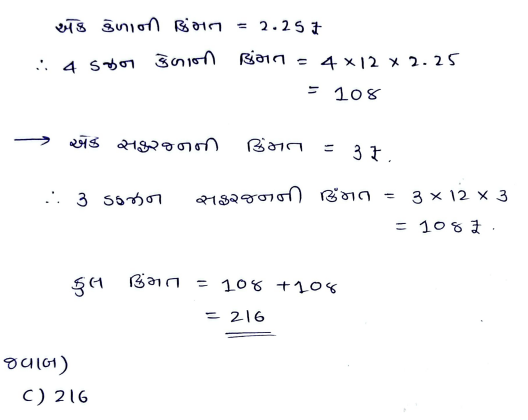 એક કેળાની કિંમત = 2.25 ₹
∴ 4 ડઝન કેળાની કિંમત = 4 × 12 × 2.25
= 108
→ એક સફરજનની કિંમત = 3 ₹.
∴ 3 ડઝન સફરજનની કિંમત = 3 × 12 × 3
= 108 ₹.
કુલ કિંમત = 108 + 108
= 216
જવાબ)
C) 216